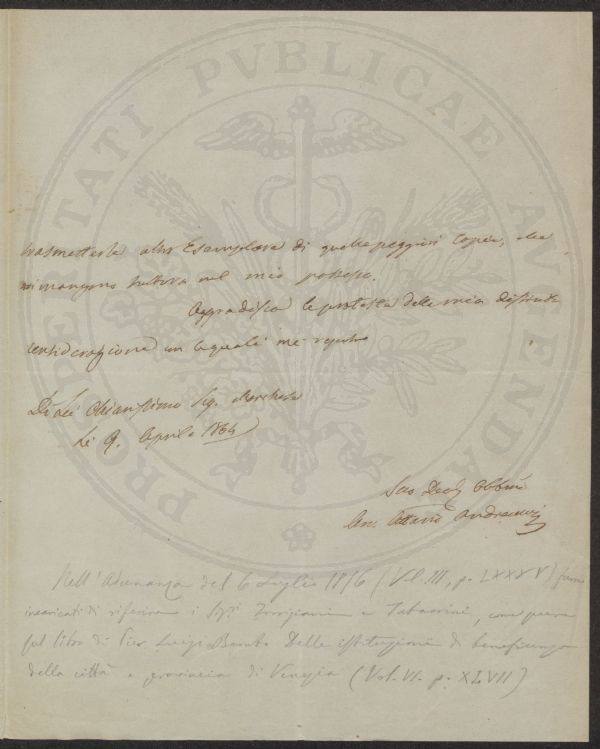 PROSPERITATI PVBLICAE AVGENDAE
trasmetterle altro Esemplare di quelle peggiori Copie, che
rimangono tuttora nel mio possesso.
Aggradisca le proteste della mia distinta
considerazione con la quale mi ripeto
Di Lei Chiarissimo Sig. Marchese
Li 9. Aprile 1864
Suo Devot Obbmo
Ottavio Andreucci
Nell'Adunanza del 6 Luglio 1876 (Vol. III, p. LXXXV) furono
incaricati di riferirne i Sigi Torrigiani e Tabarrini, come pure
sul libro di Pier Luigi Bembo Delle istituzioni di beneficenza
della città e provincia di Venezia (Vol. VI. p. XLVII)